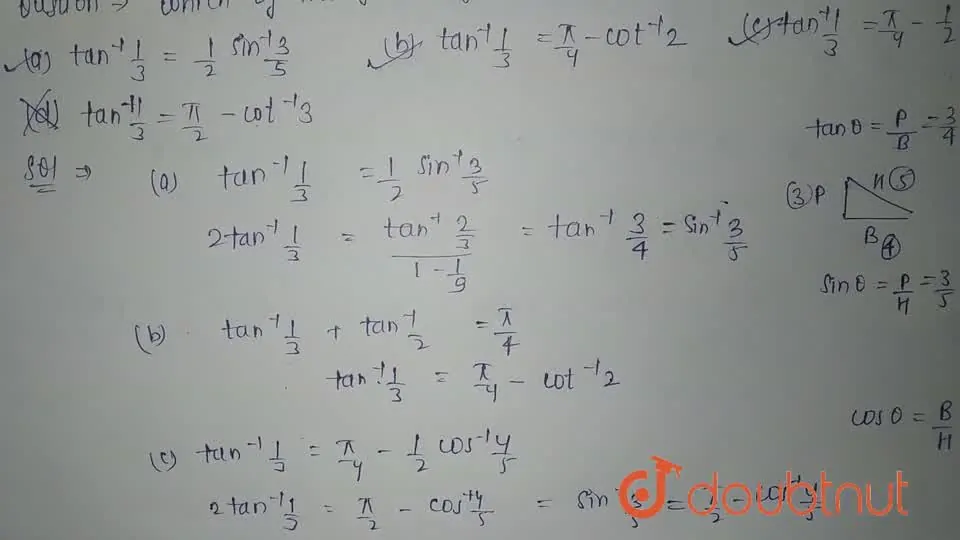 which of
(a) tan⁻¹ 1/3 = 1/2 sin⁻¹ 3/5 (b) tan⁻¹ 1/3 = π/4 - cot⁻¹ 2 (c) tan⁻¹ 1/3 = π/4 - 1/2
(d) tan⁻¹ 1/3 = π/2 - cot⁻¹ 3
tan θ = P/B = 3/4
Sol ⇒ (a) tan⁻¹ 1/3 = 1/2 sin⁻¹ 3/5
(3) P H (5)
B (4)
2 tan⁻¹ 1/3 = tan⁻¹ 2/3 / 1 - 1/9 = tan⁻¹ 3/4 = sin⁻¹ 3/5
sin θ = P/H = 3/5
(b) tan⁻¹ 1/3 + tan⁻¹ 1/2 = π/4
tan⁻¹ 1/3 = π/4 - cot⁻¹ 2
cos θ = B/H
(c) tan⁻¹ 1/3 = π/4 - 1/2 cos⁻¹ 4/5
2 tan⁻¹ 1/3 = π/2 - cos⁻¹ 4/5 = sin⁻¹ 3/5 = π/2 - cos⁻¹ 4/5
doubtnut